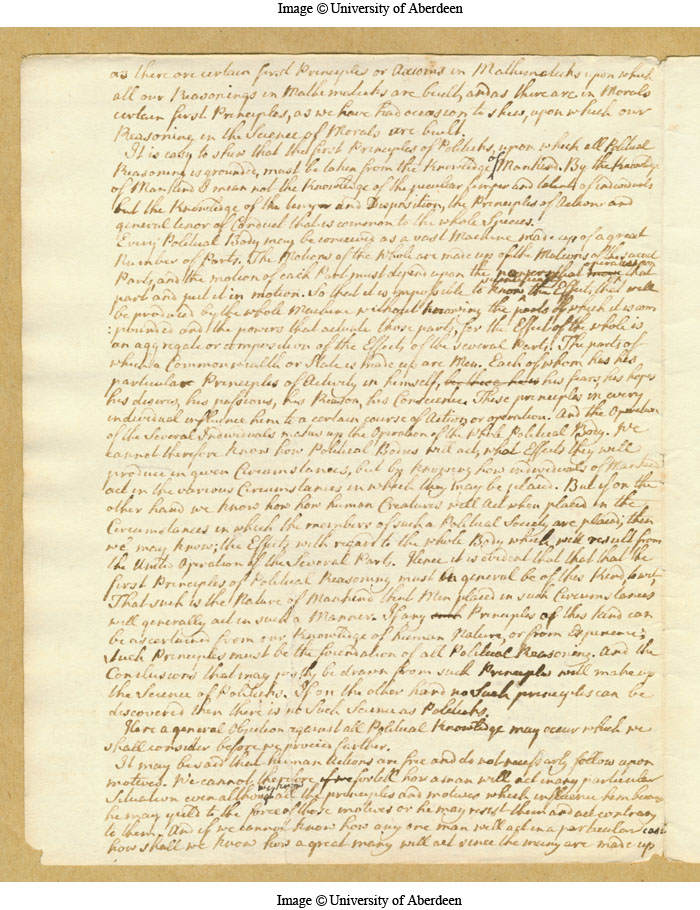 Image © University of Aberdeen
as there are certain first Principles or Axioms in Mathematicks upon which
all our Reasonings in Mathematicks are built, and as there are in Morals
certain first Principles, as we have had occasion to shew, upon which our
Reasoning in the Science of Morals are built.
It is easy to shew that the first Principles of Politicks, upon which all Political
Reasoning is grounded, must be taken from the Knowledge of Mankind. By the Knowledge
of Mankind I mean not the Knowledge of the peculiar temper and talents of individuals
but the Knowledge of the temper and Disposition, the Principles of Actions and
general tenor of Conduct that is common to the whole Species.
Every Political Body may be conceived as a vast Machine made up of a great
Number of Parts. The Motions of the Whole are made up of the Motions of the several
Parts, and the motion of each Part must depend upon the operate upon that
part and put it in motion. So that it is impossible to know the Effect, that will
be produced by the whole Machine without knowing the parts of which it is com
:pounded and the powers that actuate those parts, for the Effect of the whole is
an aggregate or composition of the Effects of the Several Parts. The parts of
which a Commonwealth or State is made up are Men. Each of whom has his
particular Principles of Activity in himself, his fears, his hopes
his desires, his passions, his Reason, his Conscience. These principles in every
individual influence him to a certain course of Action or operation. And the Operation
of the Several Individuals makes up the Operation of the Whole Political Body. We
cannot therefore know how Political Bodies will act, what Effects they will
produce in given Circumstances, but by knowing how individuals of Mankind
act in the various Circumstances in which they may be placed. But if on the
other hand we know how how human Creatures will Act when placed in the
Circumstances in which the members of such a Political Society are placed; then
we may know; the Effects with regard to the whole Body which will result from
the United Operation of the Several Parts. Hence it is evident that that that the
first Principles of Political Reasoning must in general be of this kind, to wit
That such is the Nature of Mankind that Men placed in such Circumstances
will generally act in such a Manner. If any such Principles of this kind can
be ascertained from our Knowledge of human Nature, or from Experience;
Such Principles must be the foundation of all Political Reasoning. And the
Conclusions that may justly be drawn from such Principles will make up
the Science of Politicks. If on the other hand no Such principles can be
discovered then there is no Such Science as Politicks.
Here a general Objection against all Political Knowledge may occur which we
shall consider before we proceed further.
It may be said that human Actions are free and do not necessarly follow upon
motives. We cannot therefore if we foretell how a man will act in any particular
Situation even although we know all the principles and motives which influence him because
he may yield to the force of those motives or he may resist them and act contrary
to them. And if we cannot know how any one man will act in a particular case
how shall we know how a great many will act since the many are made up
Image © University of Aberdeen